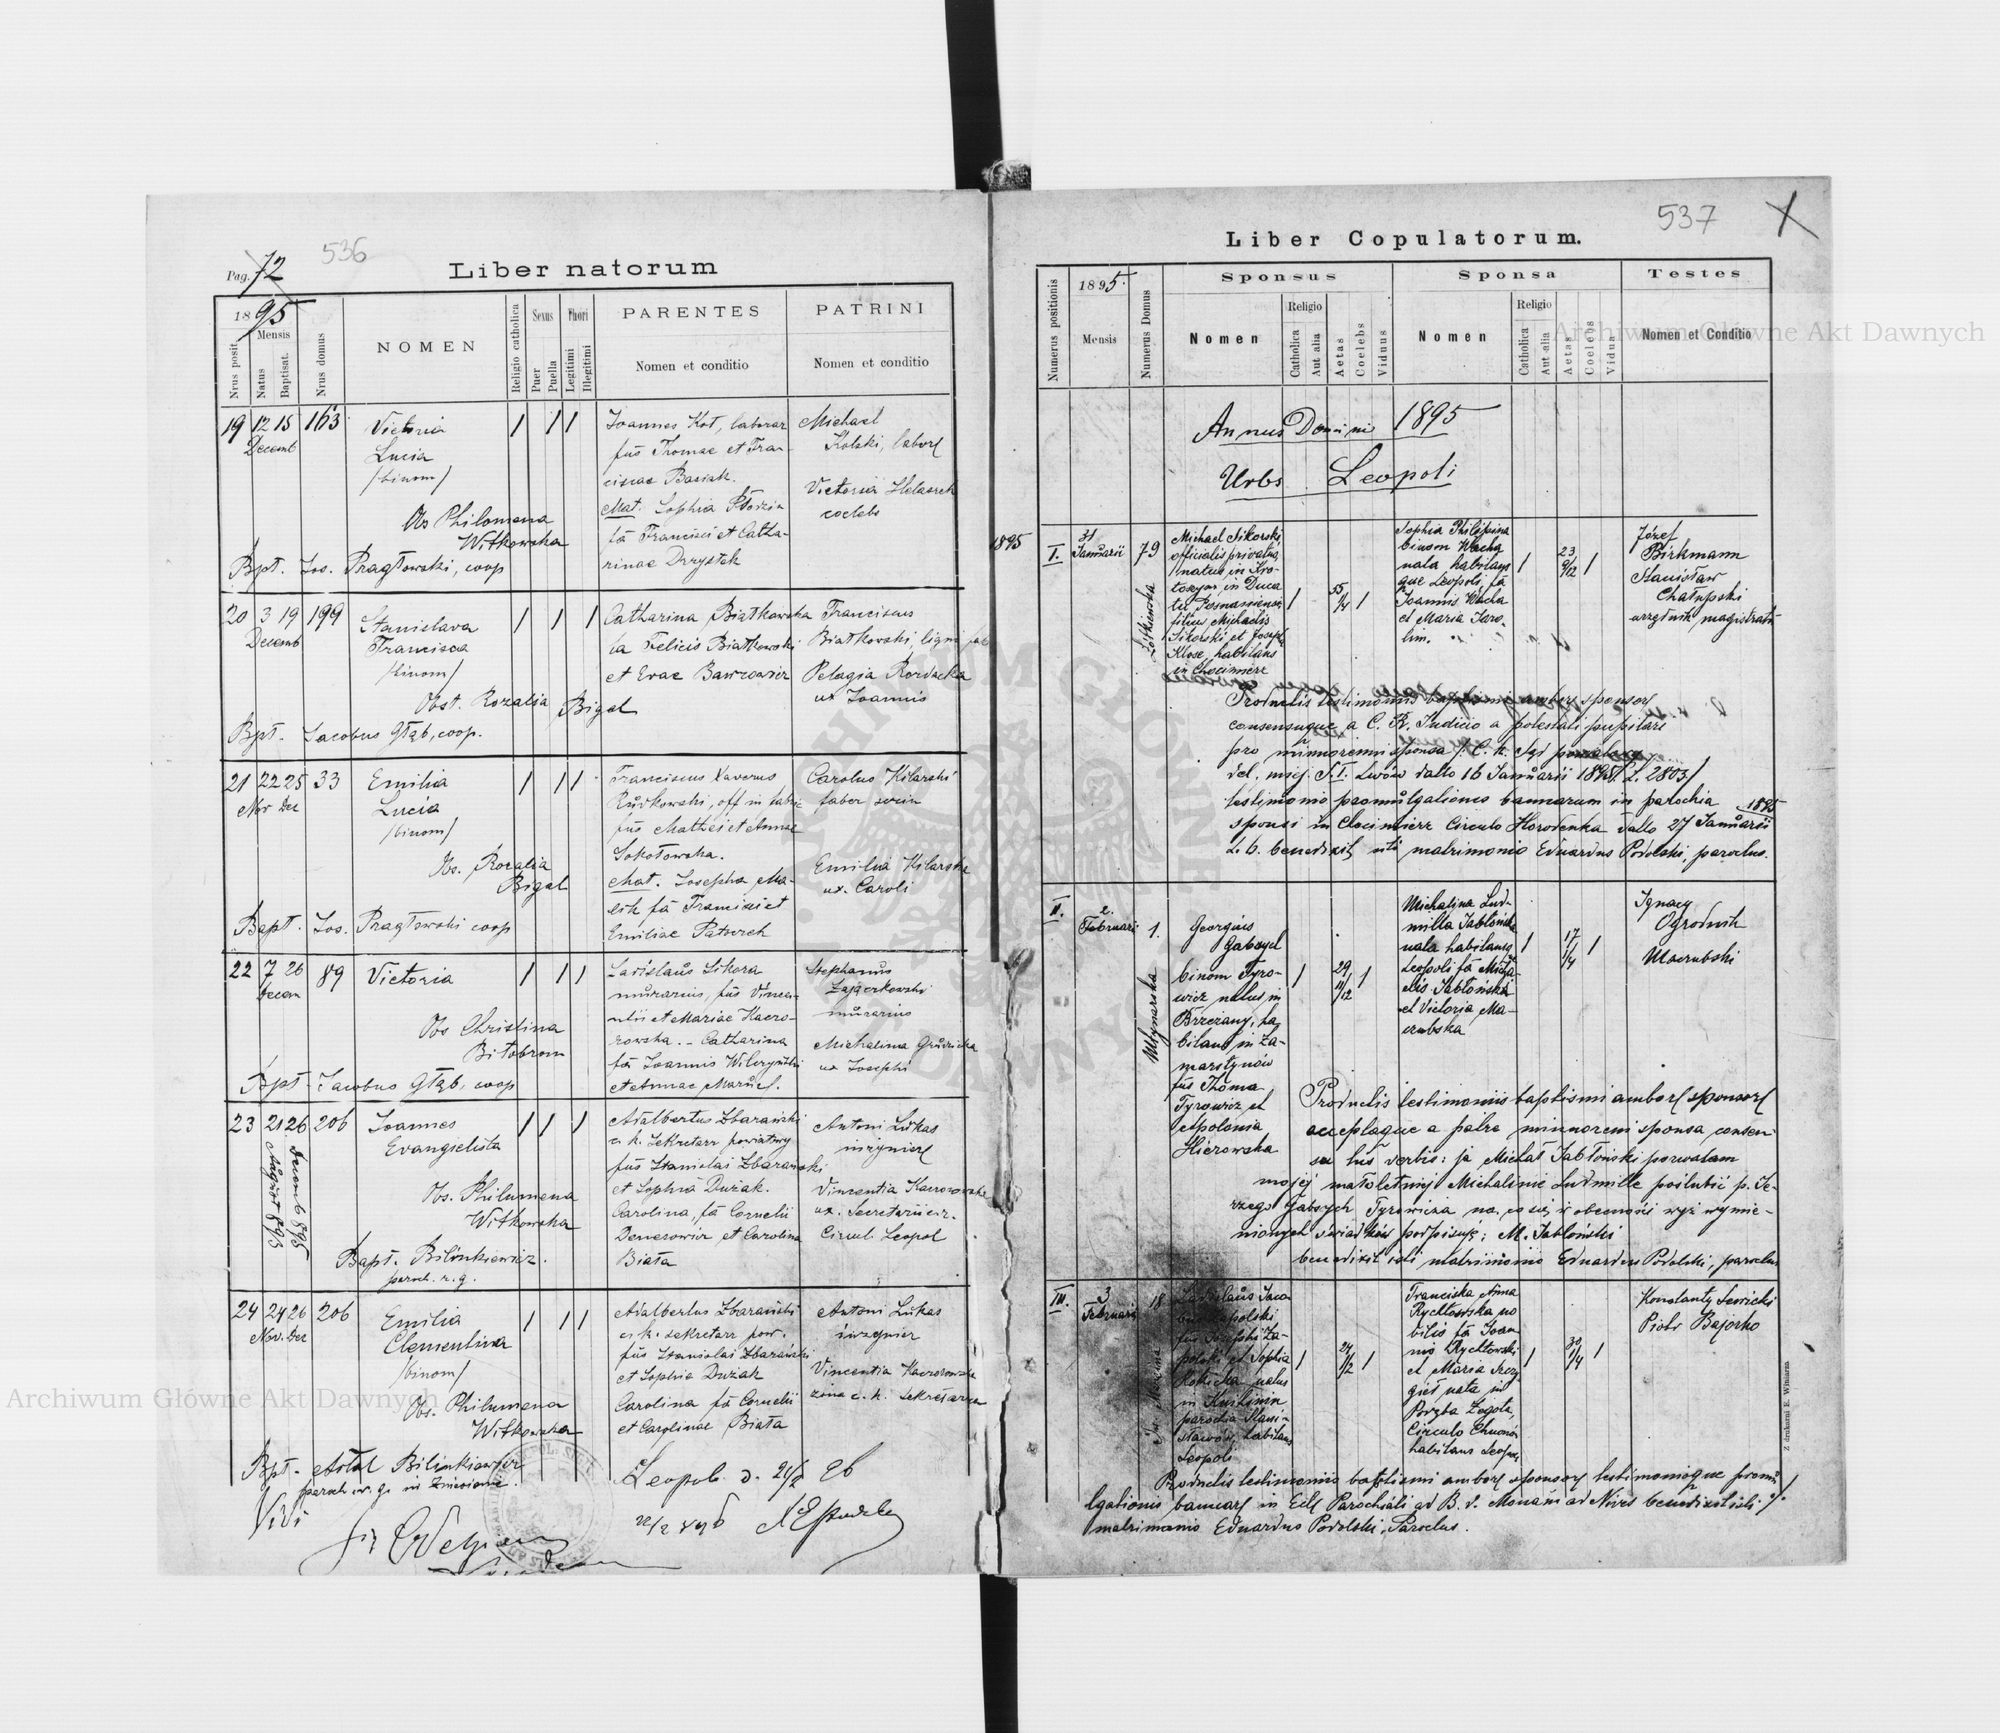 536
Pag. 72
Liber natorum
1895
Mensis
Nrus posit.
Natus
Baptisat.
Nrus domus
NOMEN
Religio catholica
Sexus
Puer
Puella
Thori
Legitimi
Illegitimi
PARENTES
Nomen et conditio
PATRINI
Nomen et conditio
19 12 15 163 Victoria
Decemb
Lucia
/binom/
Obs Philomena
Witkowska
Bpt. Jos. Pragłowski, coop
Joannes Kot, laborar
fus Thomae et Fran-
ciscae Basiak.
Mat. Sophia
fa Francisci et Catha-
rinae
Michael
Kolski, labor
Victoria
coelebs
20 3 19 199 Stanislava
Decemb
Francisca
/binom/
Obst. Rozalia Bigal
Bpt. Jacobus Głąb, coop.
Catharina Białkowska
fa Felicis Białkowski
et Evae
Franciscus
Białkowski,
Pelagia
ux Joannis
21 22 25 33 Emilia
Nov Dec
Lucia
/binom/
Obs. Rozalia
Bigal
Bapt. Jos. Pragłowski coop
Franciscus Xaverus
Rudkowski, off in fabric
fus Mathei et Annae
Sokołowska.
Mat. Josepha Ma-
fa Francisci et
Emiliae
Carolus Kilarski
faber
Emilia Kilarska
ux. Caroli
22 7 26 89 Victoria
Decem
Obs Christina
Bpt. Jacobus Głąb, coop
Ladislaus Sikora
murarius, fus Vincen-
tii et Mariae Kaczo-
rowska. - Catharina
fa Joannis
et Annae
Stephanus
Zajączkowski
murarius
Michalina
ux Josephi
23 21 26 206 Joannes
August 893
Decemb 895
Evangielista
Obs. Philumena
Witkowska
Bapt. Bilinkiewicz.
paroch. r. g.
Adalbertus Zbarański
c. k. Sekretarz powiatowy
fus Stanislai Zbarański
et Sophia Dużak.
Carolina, fa Cornelii
et Carolina
Biała
Antoni Lukas
inżynier
Vincentia
ux. Secretarii cir.
Circul Leopol
24 24 26 206 Emilia
Nov. Dec
Clementina
/binom/
Obs. Philumena
Witkowska
Bpt. Bilinkiewicz
paroch. r. g. in Zniesienie.
Adalbertus Zbarański
c. k. sekretarz pow.
fus Stanislai Zbarański
et Sophia Dużak
Carolina fa Cornelii
et Carolinae Biała
Antoni Lukas
inżynier
Vincentia
żona c. k. sekretarza
Vidi
Leopoli d. 21/2 96
22/2 896
537
Liber Copulatorum.
Numerus positionis
1895.
Mensis
Numerus Domus
Sponsus
Nomen
Religio
Catholica
Aut alia
Aetas
Coelebs
Viduus
Sponsa
Nomen
Religio
Catholica
Aut alia
Aetas
Coelebs
Vidua
Testes
Nomen et Conditio
Annus Domini 1895
Urbs Leopoli
1895
I. 31 Januarii 79
Żółkiewska
Michael Sikorski,
officialis privatus
natus in Kro-
toszyn, in Duca
tu Posnaniensi
filius Michaelis
Sikorski et Josepha
Klose, habitans
in Chocimierz
55 1/4
Sophia Philippina
binom Wacha
nata habitans
que Leopoli, fa
Joannis Wacha
et Maria Jaro-
lim.
23 9/12
Józef
Birkmann
Stanisław
urzędnik magistratu
Productis testimoniis baptismi ambor sponsor
consensuque a C. R. Judicio a potestati pupilari
pro minnorenni sponsa /: C. k. Sąd
del. miej. S. I. Lwów datto 16 Januarii 1895 / L. 2803/
testimonio promulgationes bannorum in parochia
sponsi in Chocimierz Circulo Horodenka datto 27 Januarii 1895
L. 6. benedixit isti matrimonio Eduardus Podolski, parochus.
II. 2. Februarii 1.
Młynarska
Georgius
Gabryel
binom Tyro-
wicz natus in
Brzeżany, ha-
bitans in Za-
marstynów
fus Thoma
Tyrowicz et
Apolonia
29 11/12
Michalina Lud-
milla Jabłońska
nata habitans
Leopoli fa Micha-
elis Jabłoński
et Victoria Ma-
17 1/4
Ignacy
Ogrodnik
Productis testimoniis baptismi ambor sponsor
acceptaque a patre minnoreni sponsa consen-
su his verbis: ja Michał Jabłoński pozwalam
mojej małoletniej Michalinie Ludmille poślubić p. Je-
rzego Gabryel Tyrowicza na co się w obecności wyż wymie-
nionych świadków podpisuję: M. Jabłoński
benedixit isti matrimonio Eduardus Podolski, parochus
III. 3 Februarii 18
Ladislaus Jaco
bus Zapolski
fus Josephi Za-
polski et Sophia
natus
in Knihinin
parochia Stani-
sławów, habitans
Leopoli
24 1/2
Franciska Anna
Rychłowska no
bilis fa Joan
nis Rychłowski
et Maria
nata in
Poręba Żegota,
Circulo Chrzanów
habitans Leopoli
30 1/4
Konstanty Sawicki
Piotr Bajorko
Productis testimoniis baptismi ambor sponsor testimonioque promu
lgationis bannor in Eccl Parochiali ad B. V. Mariam ad Nives benedixit isti
matrimonio Eduardus Podolski, Parochus.
Z drukarni E. Winiarza
Archiwum Główne Akt Dawnych
Archiwum Główne Akt Dawnych